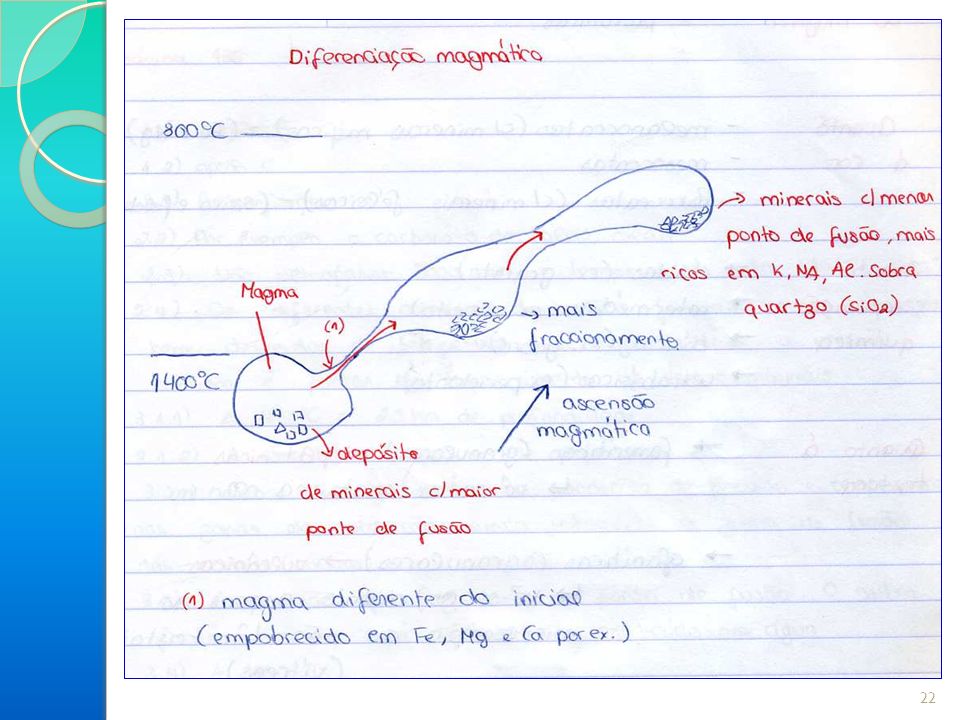 Diferenciação magmática
800°C
→ minerais c/menor
ponto de fusão, mais
ricos em K, NA, Al. Sobra
quartzo (SiO2)
Magma
(1)
→ mais
fraccionamento
1400°C
ascensão
magmática
depósito
de minerais c/maior
ponte de fusão
(1) magma diferente do inicial
(empobrecido em Fe, Mg e Ca por ex.)
22